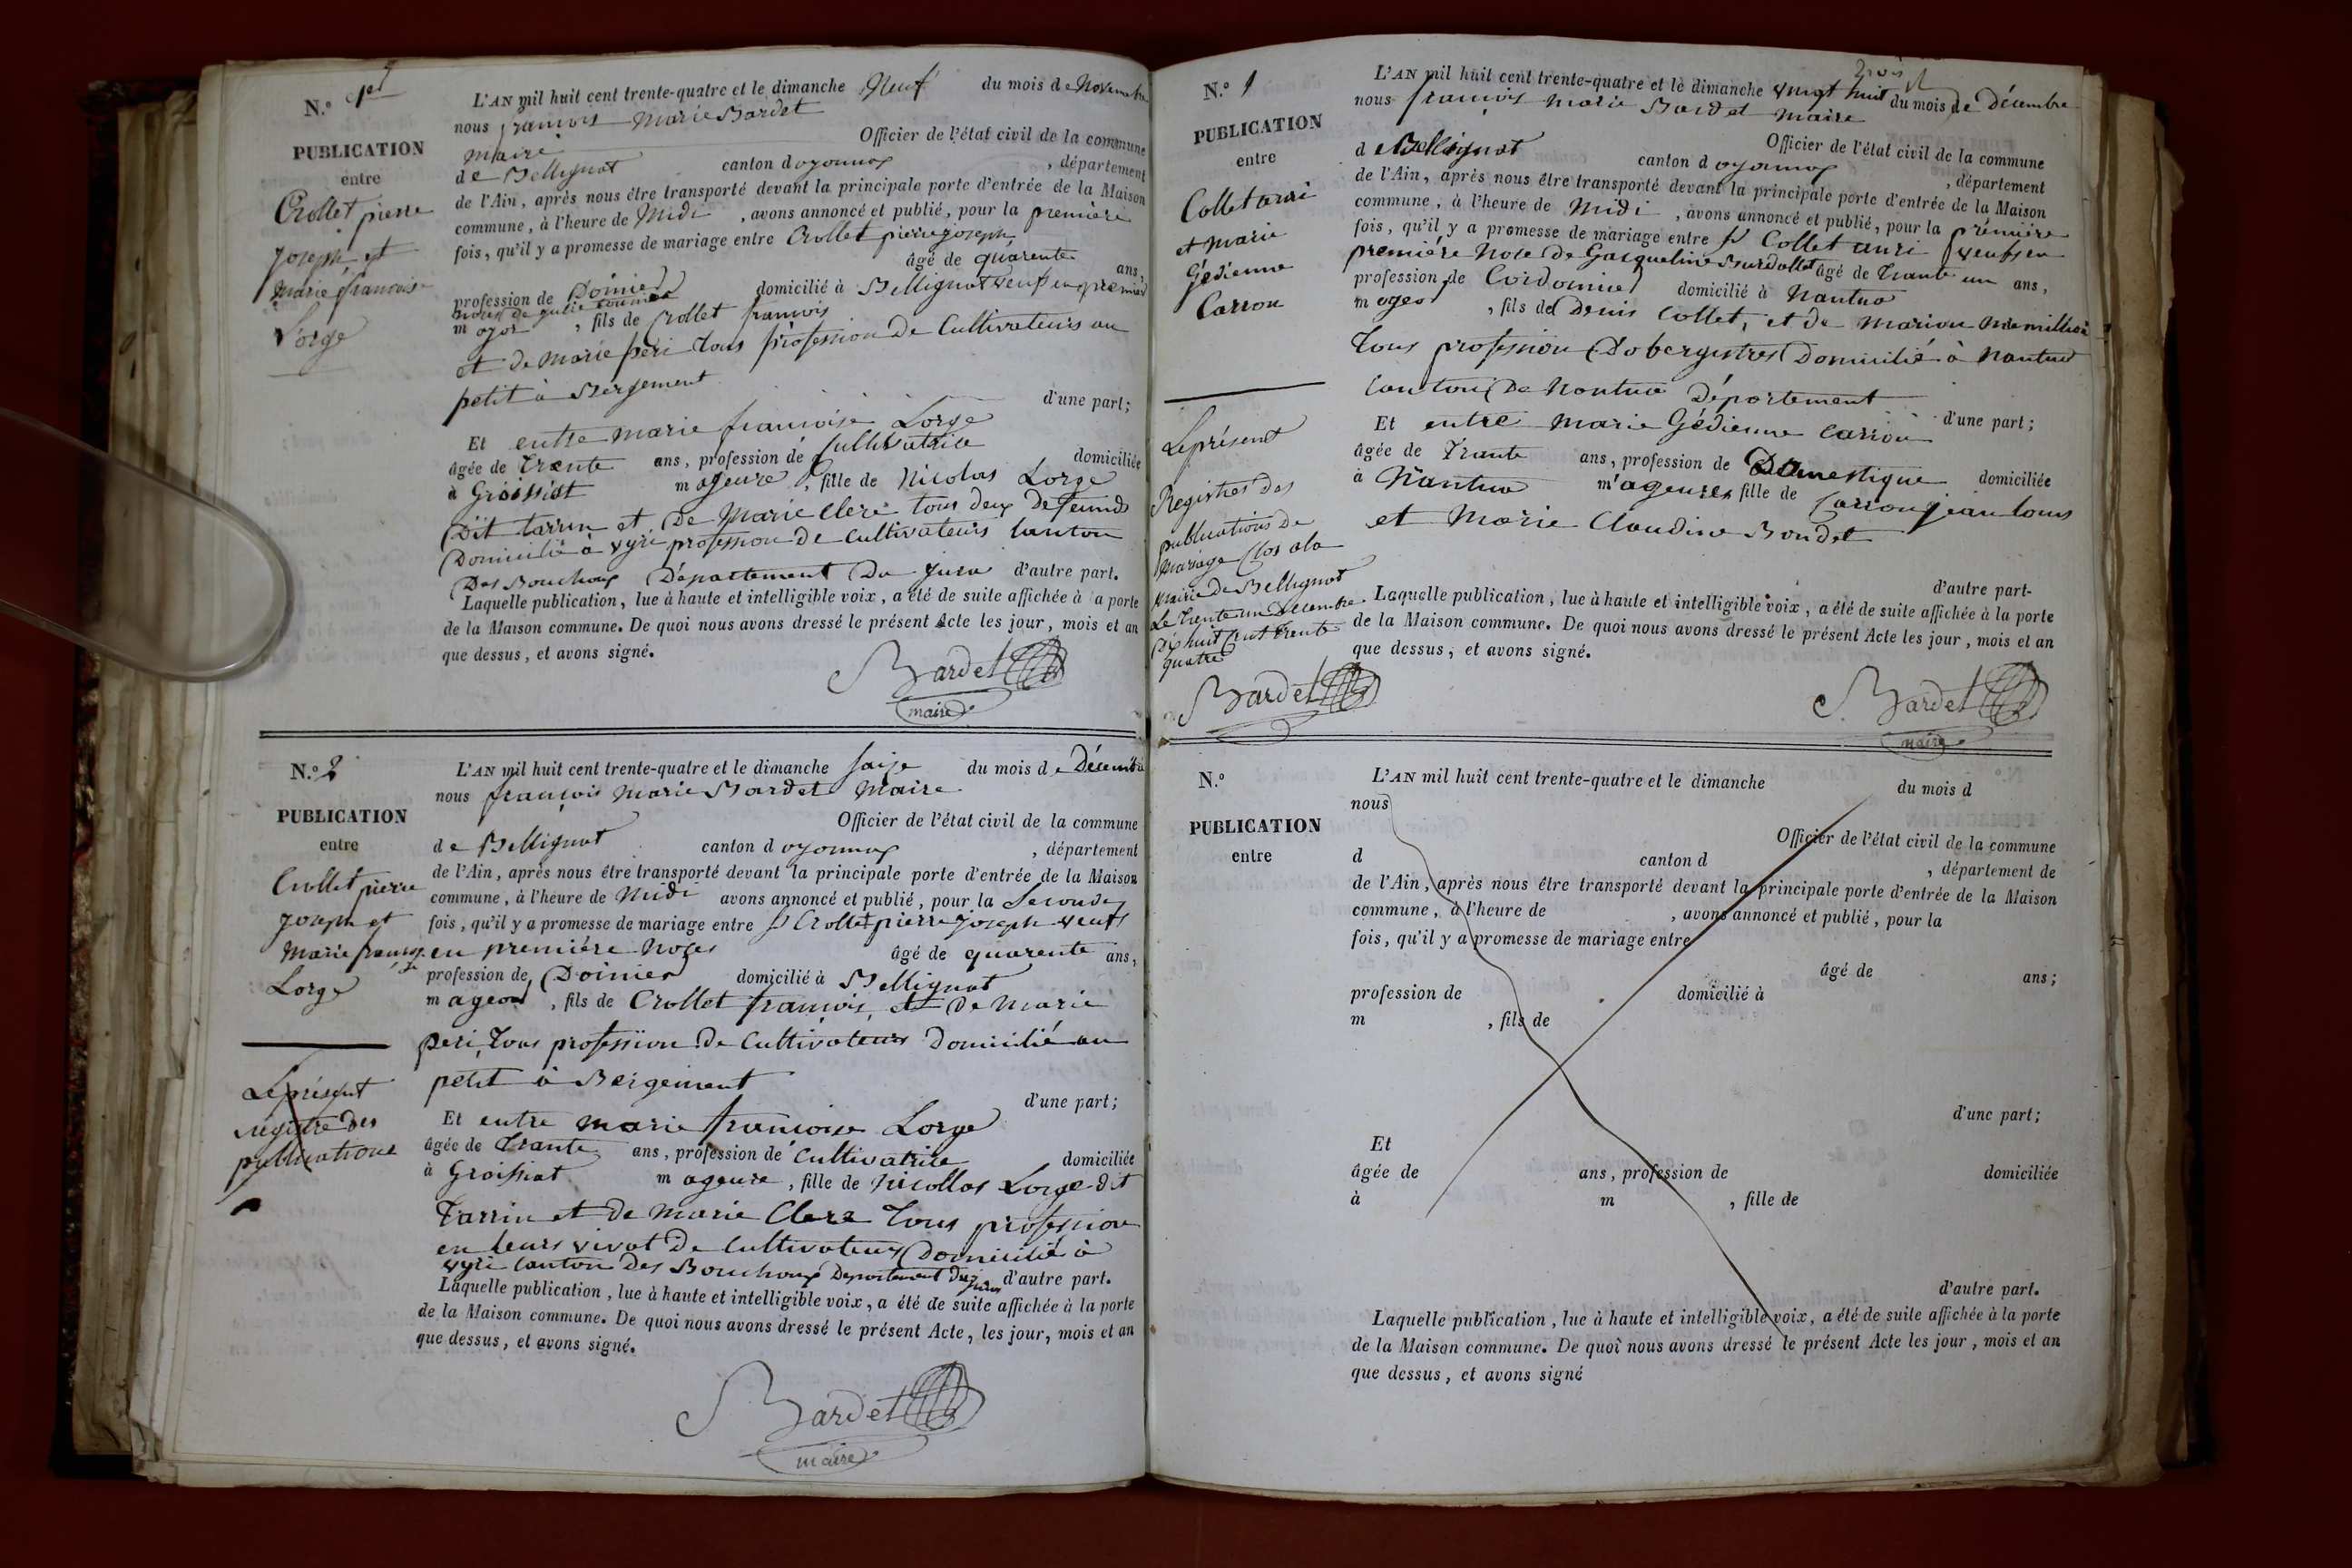 N.° 1er
PUBLICATION
entre
Crollet pierre
Joseph et
Marie francoise
Lorge
L'AN mil huit cent trente-quatre et le dimanche Neuf du mois de Novembre
nous francois Marie Bardet
Maire Officier de l'état civil de la commune
de Bellignat canton d oyonnax , département
de l'Ain, après nous être transporté devant la principale porte d'entrée de la Maison
commune, à l'heure de Midi , avons annoncé et publié, pour la première
fois, qu'il y a promesse de mariage entre Crollet pierre joseph
âgé de quarente ans,
profession de Doinier domicilié à Bellignat veuf en premier
noces de julie
m ajor , fils de Crollet francois
et de marie peri tous profession de Cultivateurs au
petit à Bergement
d'une part;
Et entre marie francoise Lorge
âgée de trente ans, profession de Cultivatrice domiciliée
à Groissiat m ageure , fille de Nicolas Lorge
Dit tarrin et De Marie Clere tous deux defeunds
Domicilié à vyri profession de Cultivateurs canton
Des Bouchoux Département Du Jura d'autre part.
Laquelle publication, lue à haute et intelligible voix, a été de suite affichée à la porte
de la Maison commune. De quoi nous avons dressé le présent Acte les jour, mois et an
que dessus, et avons signé.
Bardet
maire
N.° 2
PUBLICATION
entre
Crollet pierre
Joseph et
Marie francoise
Lorge
Le présent
registre des
publications
L'AN mil huit cent trente-quatre et le dimanche saize du mois de Décembre
nous françois Marie Bardet Maire
Officier de l'état civil de la commune
de Bellignat canton d oyonnax , département
de l'Ain, après nous être transporté devant la principale porte d'entrée de la Maison
commune, à l'heure de Midi avons annoncé et publié, pour la Seconde
fois, qu'il y a promesse de mariage entre Crollet pierre joseph veuf
en première Noces âgé de quarente ans,
profession de Doinier domicilié à Bellignat
m ageor , fils de Crollet francois et de Marie
peri, tous profession de Cultivateurs domicilié au
petit à Bergement
d'une part;
Et entre marie francoise Lorge
âgée de trante ans, profession de Cultivatrice domiciliée
à Groissiat m ageure , fille de Nicollas Lorge dit
Tarrin et de Marie Clere tous profession
en leurs vivat de Cultivateurs Domicilié à
vyri canton Des Bouchoux Departement du jura d'autre part.
Laquelle publication, lue à haute et intelligible voix, a été de suite affichée à la porte
de la Maison commune. De quoi nous avons dressé le présent Acte, les jour, mois et an
que dessus, et avons signé.
Bardet
maire
N.° 1
PUBLICATION
entre
Collet auri
et Marie
Gédienne
Carron
Le présent
Registres des
publications de
Mariage Clos a la
Mairie de Bellignat
Le trente un Décembre
Dix huit Cent trente
quatre
Bardet
L'AN mil huit cent trente-quatre et le dimanche vingt huit du mois de Décembre
nous francois marie Bardet Maire
Officier de l'état civil de la commune
de Bellignat canton d oyonnax , département
de l'Ain, après nous être transporté devant la principale porte d'entrée de la Maison
commune, à l'heure de Midi , avons annoncé et publié, pour la première
fois, qu'il y a promesse de mariage entre Collet auri veuf en
première Nose de Gasqueline Burdallet âgé de trante un ans,
profession de Cordonnier domicilié à Nantua
m ageor , fils de Denis Collet, et de Marion
Tous profession Dobergistres Domicilié à Nantua
Canton De Nantua Département
d'une part;
Et entre Marie Gédienne Carron
âgée de Trante ans, profession de Domestique domiciliée
à Nantua m ageure fille de Carron jean louis
et Marie Claudine Bondet
d'autre part-
Laquelle publication, lue à haute et intelligible voix, a été de suite affichée à la porte
de la Maison commune. De quoi nous avons dressé le présent Acte les jour, mois et an
que dessus, et avons signé.
Bardet
maire
N.°
PUBLICATION
entre
L'AN mil huit cent trente-quatre et le dimanche du mois d
nous
Officier de l'état civil de la commune
d canton d , département de
de l'Ain, après nous être transporté devant la principale porte d'entrée de la Maison
commune, à l'heure de , avons annoncé et publié, pour la
fois, qu'il y a promesse de mariage entre
âgé de ans;
profession de domicilié à
m , fils de
d'une part;
Et
âgée de ans, profession de domiciliée
à m , fille de
d'autre part.
Laquelle publication, lue à haute et intelligible voix, a été de suite affichée à la porte
de la Maison commune. De quoi nous avons dressé le présent Acte les jour, mois et an
que dessus, et avons signé